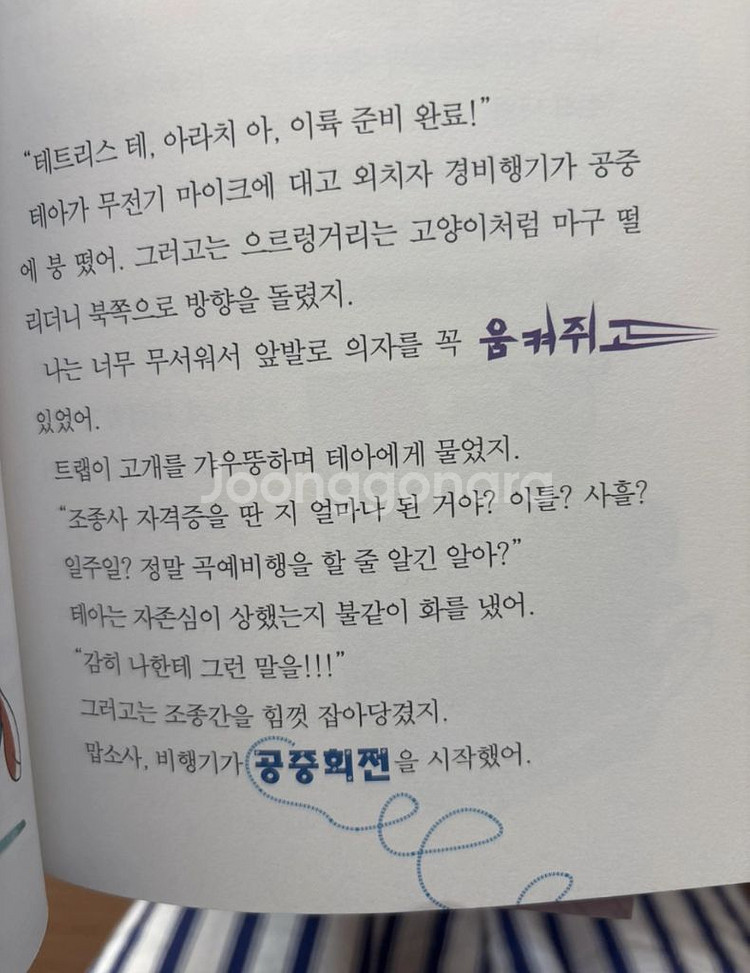 “테트리스 테, 아라치 아, 이륙 준비 완료!”
테아가 무전기 마이크에 대고 외치자 경비행기가 공중
에 붕 떴어. 그러고는 으르렁거리는 고양이처럼 마구 떨
리더니 북쪽으로 방향을 돌렸지.
나는 너무 무서워서 앞발로 의자를 꼭 움켜쥐고
있었어.
트랩이 고개를 갸우뚱하며 테아에게 물었지.
Joonggonara
“조종사 자격증을 딴 지 얼마나 된 거야? 이틀? 사흘?
일주일? 정말 곡예비행을 할 줄 알긴 알아?”
테아는 자존심이 상했는지 불같이 화를 냈어.
“감히 나한테 그런 말을!!!”
그러고는 조종간을 힘껏 잡아당겼지.
맙소사, 비행기가 공중회전을 시작했어.